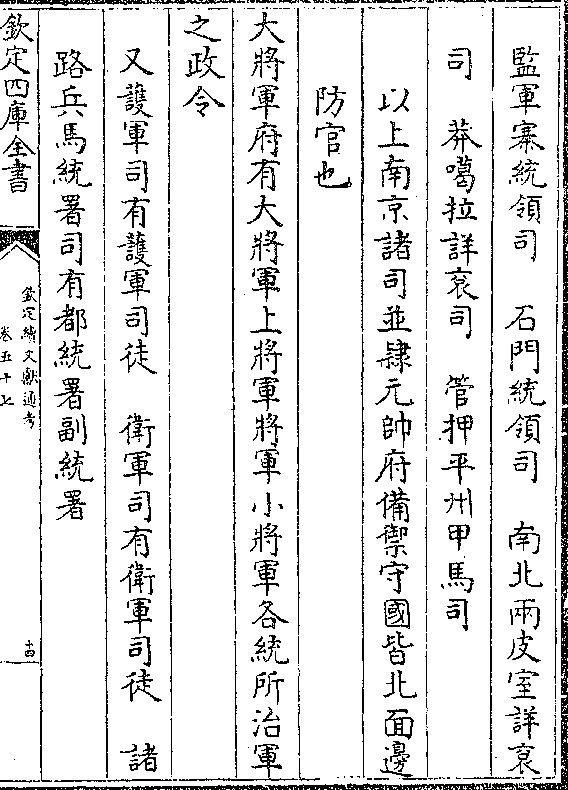 監軍寨統領司　石門統領司　南北兩皮室詳衮
司　莽噶拉詳衮司　管押平州甲馬司
以上南京諸司並隸元帥府備禦守國皆北面邊
防官也
大將軍府有大將軍上將軍將軍小將軍各統所治軍
之政令
又護軍司有護軍司徒　衛軍司有衛軍司徒　諸
路兵馬統署司有都統署副統署
欽定四庫全書
欽定續文獻通考
卷五十七
十四